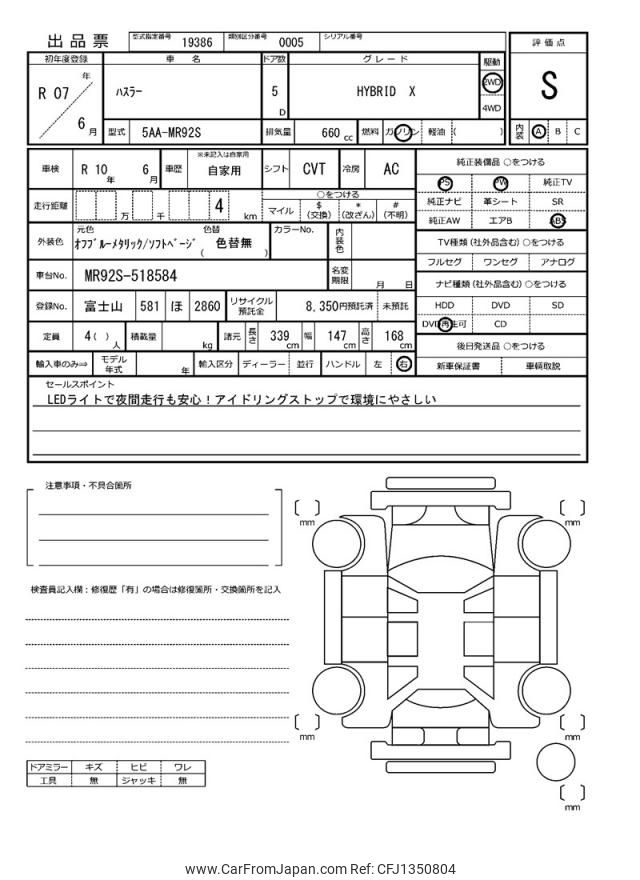 出品票
型式指定番号 19386 類別区分番号 0005 シリアル番号
初年度登録 車名 ドア数 グレード 駆動 評価点
R 07 年 6 月
ハスラー 5 D HYBRID X 2WD 4WD
S
型式 5AA-MR92S 排気量 660 cc 燃料 ガソリン 軽油 ( )
内装 A B C
車検 R 10 年 6 月 車歴 ※未記入は自家用 自家用 シフト CVT 冷房 AC
走行距離 万 千 4 km ○をつける
マイル $ (交換) * (改ざん) # (不明)
外装色 元色 色替
オフブルーメタリック/ソフトベージ 色替無 ( )
カラーNo. 内装色
車台No. MR92S-518584 名変期限 月 日
登録No. 富士山 581 ほ 2860 リサイクル預託金 8,350円預託済 未預託
定員 4( ) 人 積載量 kg 諸元 長さ 339 cm 幅 147 cm 高さ 168 cm
輸入車のみ⇒ モデル年式 年 輸入区分 ディーラー 並行 ハンドル 左 右
純正装備品 ○をつける
PS PW 純正TV
純正ナビ 革シート SR
純正AW エアB ABS
TV種類 (社外品含む) ○をつける
フルセグ ワンセグ アナログ
ナビ種類 (社外品含む) ○をつける
HDD DVD SD
DVD再生可 CD
後日発送品 ○をつける
新車保証書 車輌取説
セールスポイント
LEDライトで夜間走行も安心！アイドリングストップで環境にやさしい
注意事項・不具合箇所
検査員記入欄：修復歴「有」の場合は修復箇所・交換箇所を記入
ドアミラー キズ ヒビ ワレ
工具 無 ジャッキ 無
mm
mm
mm
mm
mm
www.CarFromJapan.com Ref: CFJ1350804